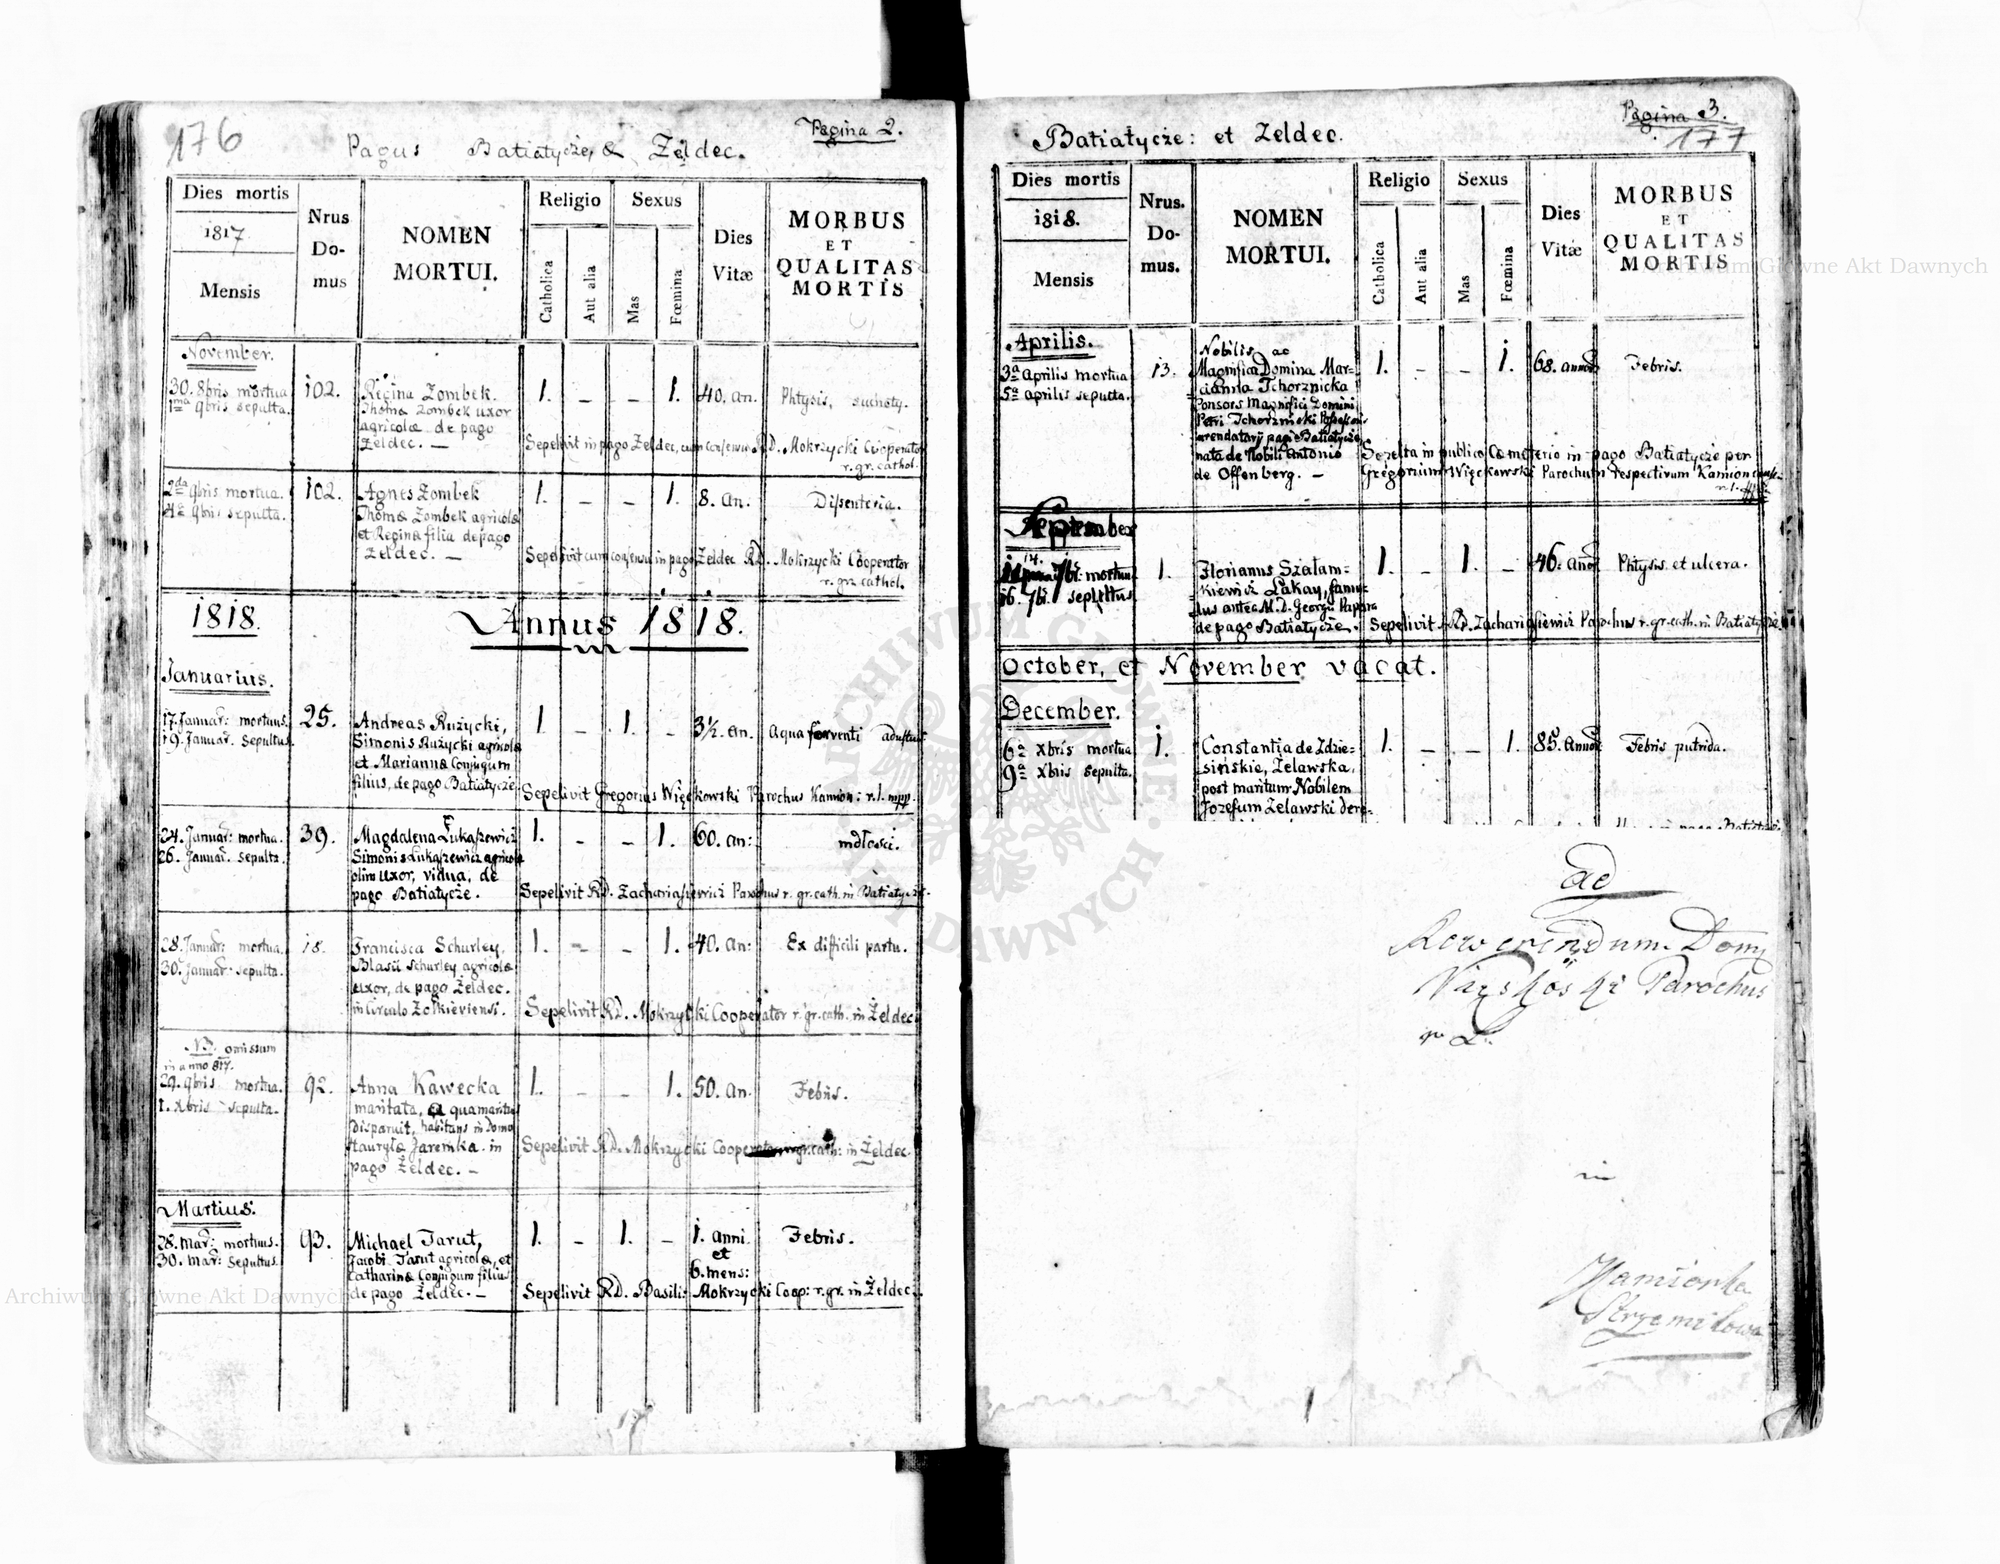 176
Pagina 2.
Pagus Batiatycze, & Żeldec.
Dies mortis
1817.
Mensis
Nrus
Do-
mus
NOMEN
MORTUI.
Religio
Catholica
Aut alia
Sexus
Mas
Fœmina
Dies
Vitæ
MORBUS
ET
QUALITAS
MORTIS
November.
30. 8bris mortua
1ma 9bris sepulta.
102.
Regina Zombek.
Thomæ Zombek uxor
agricolæ de pago
Żeldec. —
1. – – 1. 40. an. Phtysis, suchoty.
Sepelivit in pago Żeldec, cum consensu RD. Mokrzycki Cooperator
r. gr. cathol.
2da 9bris mortua.
4ta 9bris sepulta.
102.
Agnes Zombek
Thomæ Zombek agricolæ
et Reginæ filia de pago
Żeldec. —
1. – – 1. 8. an. Dissenteria.
Sepelivit cum consensu in pago Żeldec RD. Mokrzycki Cooperator
r. gr. cathol.
1818. Annus 1818.
Januarius.
17. Januar: mortuus.
19. Januar. Sepultus.
25.
Andreas Rużycki,
Simonis Rużycki agricolæ
et Mariannæ Conjugum
filius, de pago Batiatycze.
1 – 1. – 3½. an. Aqua ferventi adustus
Sepelivit Gregorius Więckowski Parochus Kamion: r. l. mpp.
24. Januar: mortua.
26. Januar. sepulta.
39.
Magdalena Łukaszewicz
Simonis Łukaszewicz agricolæ
olim uxor, vidua, de
pago Batiatycze.
1. – – 1. 60. an: mdłości.
Sepelivit RD. Zachariasiewicz Parochus r. gr. cath. in Batiatycze.
28. Januar: mortua.
30. Januar: sepulta.
18.
Francisca Schurley.
Blasii Schurley agricolæ
uxor, de pago Żeldec.
in Circulo Zołkieviensi.
1. – – 1. 40. an: Ex difficili partu.
Sepelivit RD. Mokrzycki Cooperator r. gr. cath. in Żeldec.
NB. omissum
in anno 817.
29. 9bris mortua.
1. Xbris sepulta.
92.
Anna Kawecka
maritata, a qua maritus
disparuit, habitans in Domo
Hauryłæ Jaremka. in
pago Żeldec. –
1. – – 1. 50. an. Febris.
Sepelivit RD. Mokrzycki Cooperator r. gr. cath: in Żeldec.
Martius.
28. Mar: mortuus.
30. Mar: Sepultus.
93.
Michael Tarut,
Jacobi Tarut agricolæ, et
Catharinæ Conjugum filius
de pago Żeldec. –
1. – 1. – 1. anni.
et
6. mens:
Febris.
Sepelivit RD. Basili: Mokrzycki Coop: r. gr. in Żeldec.
Pagina 3.
177
Batiatycze: et Zeldec.
Dies mortis
1818.
Mensis
Nrus.
Do-
mus.
NOMEN
MORTUI.
Religio
Catholica
Aut alia
Sexus
Mas
Fœmina
Dies
Vitæ
MORBUS
ET
QUALITAS
MORTIS
Aprilis.
3a Aprilis mortua
5a Aprilis sepulta.
13.
Nobilis ac
Magnifica Domina Mar-
cianna Tchorznicka
Consors Magnifici Domini
Petri Tchorznicki
arendatarii pagi Batiatycze,
nata de Nobili Antonio
de Offenberg. —
1. – – 1. 68. annor Febris.
Sepulta in publico Cæmeterio in pago Batiatycze per
Gregorium Więckowski Parochum respectivum Kamion
September
14. 7bi: mortuus
16. 7bi. sepultus
1.
Florianus Szalam-
kiewicz Lakay, famu-
lus antea M. D. Georgii Papara
de pago Batiatycze.
1. – 1. – 46. anor Phtysis et ulcera.
Sepelivit RD. Zachariasiewicz Parochus r. gr. cath. in Batiatycze
October, et November vacat.
December.
6a Xbris mortua
9a Xbris sepulta.
1.
Constantia de Zdzie-
sińskie, Zelawska,
post maritum Nobilem
Jozefum Zelawski dere-
1. – – 1. 85. annor Febris putrida.
ad
Parochus
in
Kamionka
Strzemilowa
ARCHIWUM GŁÓWNE AKT DAWNYCH
Archiwum Główne Akt Dawnych
Archiwum Główne Akt Dawnych